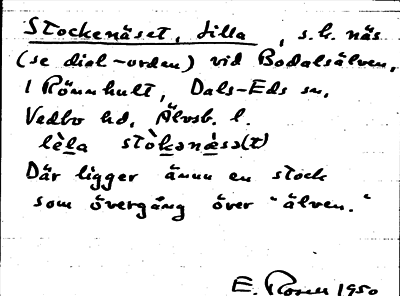 Stockenäset, Lilla, s.k. näs
(se dial-orden) vid Bodalsälven,
i Rönnhult, Dals-Eds sn,
Vedbo hd, Älvsb. l.
lèla stòkənæ̀sə(t)
Där ligger ännu en stock
som övergång över "älven."
E. Rosell 1950